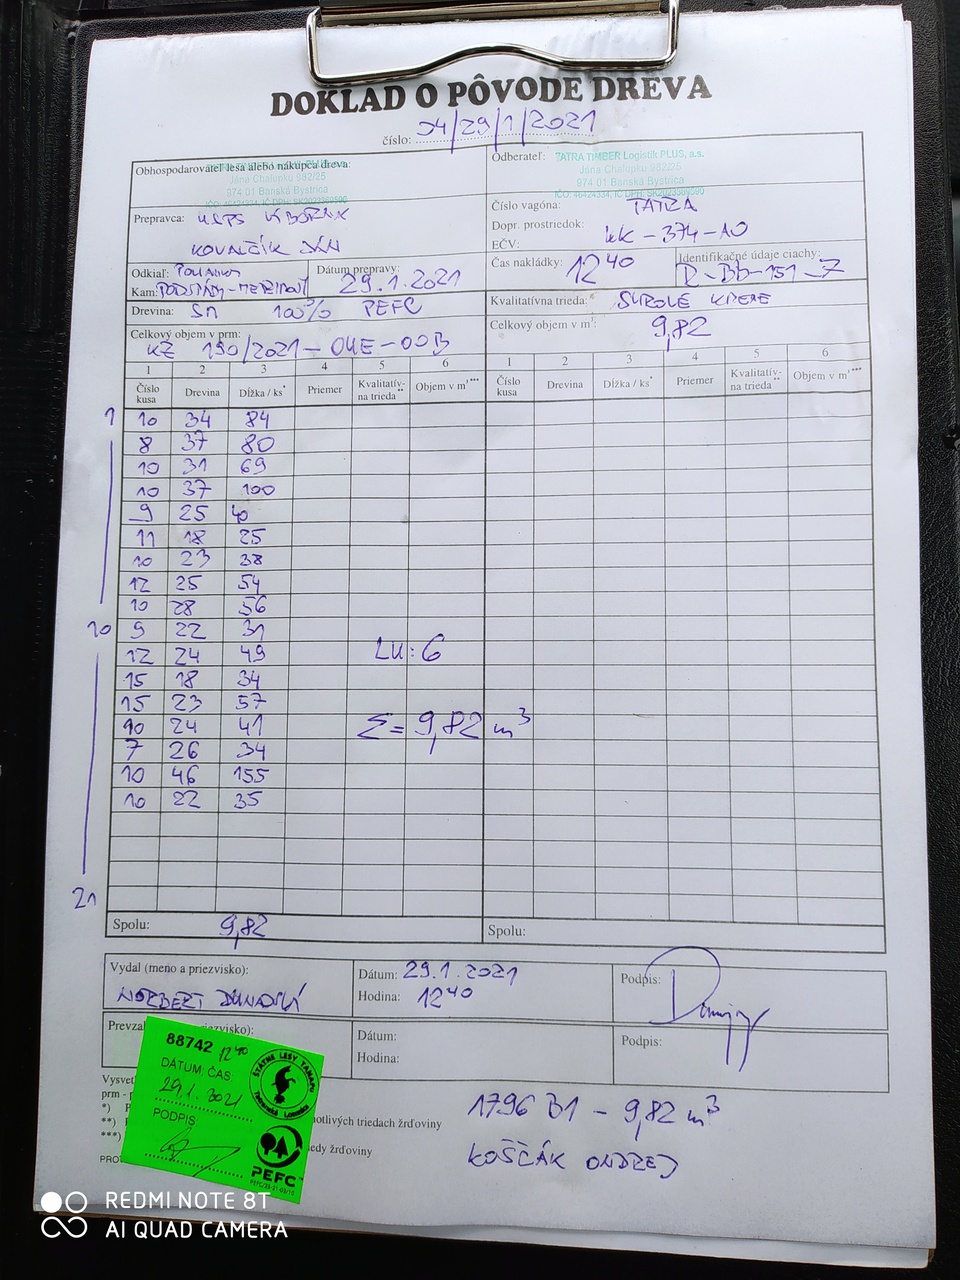 DOKLAD O PÔVODE DREVA
číslo: 04/29/1/2021
Obhospodarovateľ lesa alebo nákupca dreva:
TATRA TIMBER Logistik PLUS, a.s.
Jána Chalupku 982/25
974 01 Banská Bystrica
Odberateľ:
TATRA TIMBER Logistik PLUS, a.s.
Jána Chalupku 982/25
974 01 Banská Bystrica
Prepravca:
KOVALČÍK JÁN
Číslo vagóna: TATRA
Dopr. prostriedok:
EČV: KK-374-AO
Odkiaľ:
Kam:
Dátum prepravy: 29.1.2021
Čas nakládky: 12 40
Identifikačné údaje ciachy:
R-Bb-151-7
Drevina: SM 100% PEFC
Kvalitatívna trieda:* SUROVÉ KMENE
Celkový objem v prm:
KZ 190/2021-OKE-OOB
Celkový objem v m³: 9,82
1 2 3 4 5 6 1 2 3 4 5 6
Číslo kusa Drevina Dĺžka / ks* Priemer Kvalitatív-na trieda** Objem v m³*** Číslo kusa Drevina Dĺžka / ks* Priemer Kvalitatív-na trieda** Objem v m³***
1 10 34 84
8 37 80
10 31 69
10 37 100
9 25 40
11 18 25
10 23 38
12 25 54
10 28 56
10 9 22 31
12 24 49 LU: 6
15 18 34
15 23 57
10 24 41 Σ= 9,82 m³
7 26 34
10 46 155
10 22 35
21
Spolu: 9,82
Spolu:
Vydal (meno a priezvisko):
NORBERT
Dátum: 29.1.2021
Hodina: 12 40
Podpis:
Prevzal priezvisko):
Dátum:
Hodina:
Podpis:
88742 12 40
DÁTUM: ČAS:
29.1.2021
PODPIS:
ŠTÁTNE LESY TANAPU
Tatranská Lomnica
PEFC™
Vysvet
prm - p
*) P
**) P
***)
PRO
notlivých triedach žrďoviny
edy žrďoviny
1796 B1 - 9,82 m³
KOŠČÁK ONDREJ
REDMI NOTE 8T
AI QUAD CAMERA